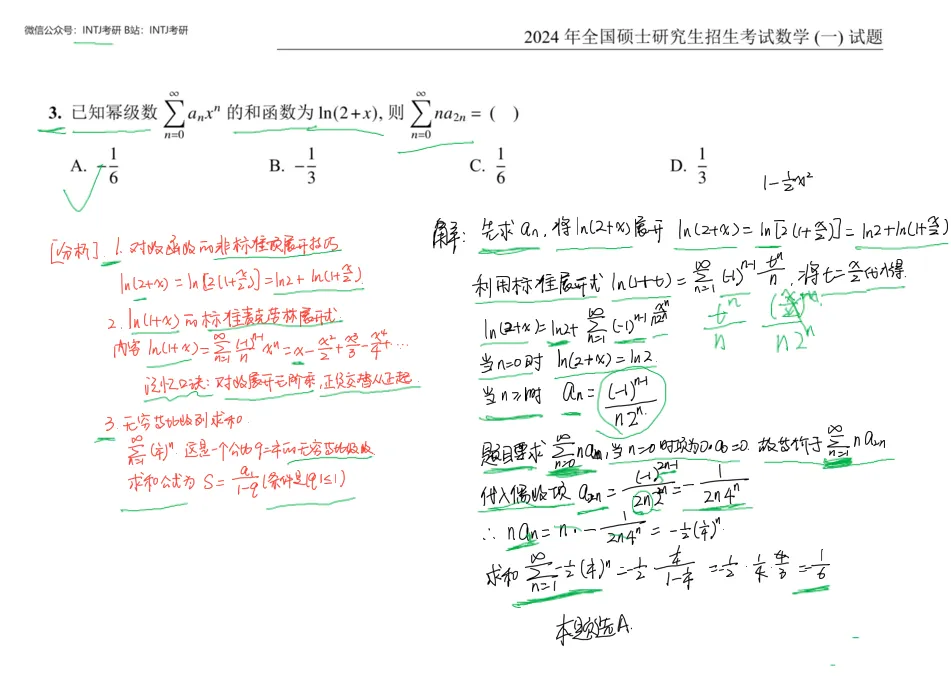 微信公众号：INTJ考研 B站：INTJ考研
2024 年全国硕士研究生招生考试数学 (一) 试题
3. 已知幂级数 ∑_{n=0}^{∞} a_n x^n 的和函数为 ln(2+x), 则 ∑_{n=0}^{∞} na_{2n} = ( )
A. -1/6 B. -1/3 C. 1/6 D. 1/3
1-1/2x²
[分析] 1. 对数函数的非标准项展开技巧
ln(2+x)=ln[2(1+x/2)]=ln2+ln(1+x/2)
2. ln(1+x)的标准麦克劳林展开式
内容 ln(1+x)=∑_{n=1}^{∞} (-1)^{n-1}/n x^n=x-x²/2+x³/3-x⁴/4+…
记忆口诀：对数展开无阶乘,正负交替从正起.
3. 无穷等比级列求和
∑_{n=1}^{∞}(1/4)^n. 这是一个公比q=1/4的无穷等比级数
求和公式为 S=a₁/(1-q)(条件是|q|≤1)
解：先求a_n,将ln(2+x)展开 ln(2+x)=ln[2(1+x/2)]=ln2+ln(1+x/2)
利用标准展开式 ln(1+t)=∑_{n=1}^{∞}(-1)^{n-1} t^n/n, 将t=x/2代入得.
ln(2+x)=ln2+∑_{n=1}^{∞}(-1)^{n-1} x^n/n2^n
t^n/n (x/2)^n/n2^n
当n=0时 ln(2+x)=ln2.
当n≥1时 a_n=(-1)^{n-1}/n2^n.
题目要求∑_{n=0}^{∞}na_{2n},当n=0时项为0·a₀=0. 故等价于∑_{n=1}^{∞}na_{2n}
代入偶数项 a_{2n}=(-1)^{2n-1}/2n2^{2n}=-1/2n4^n
∴ na_{2n}=n·-1/2n4^n=-1/2(1/4)^n.
求和∑_{n=1}^{∞}-1/2(1/4)^n=-1/2·(1/4)/(1-1/4)=-1/2·1/4·4/3=-1/6
本题选A.